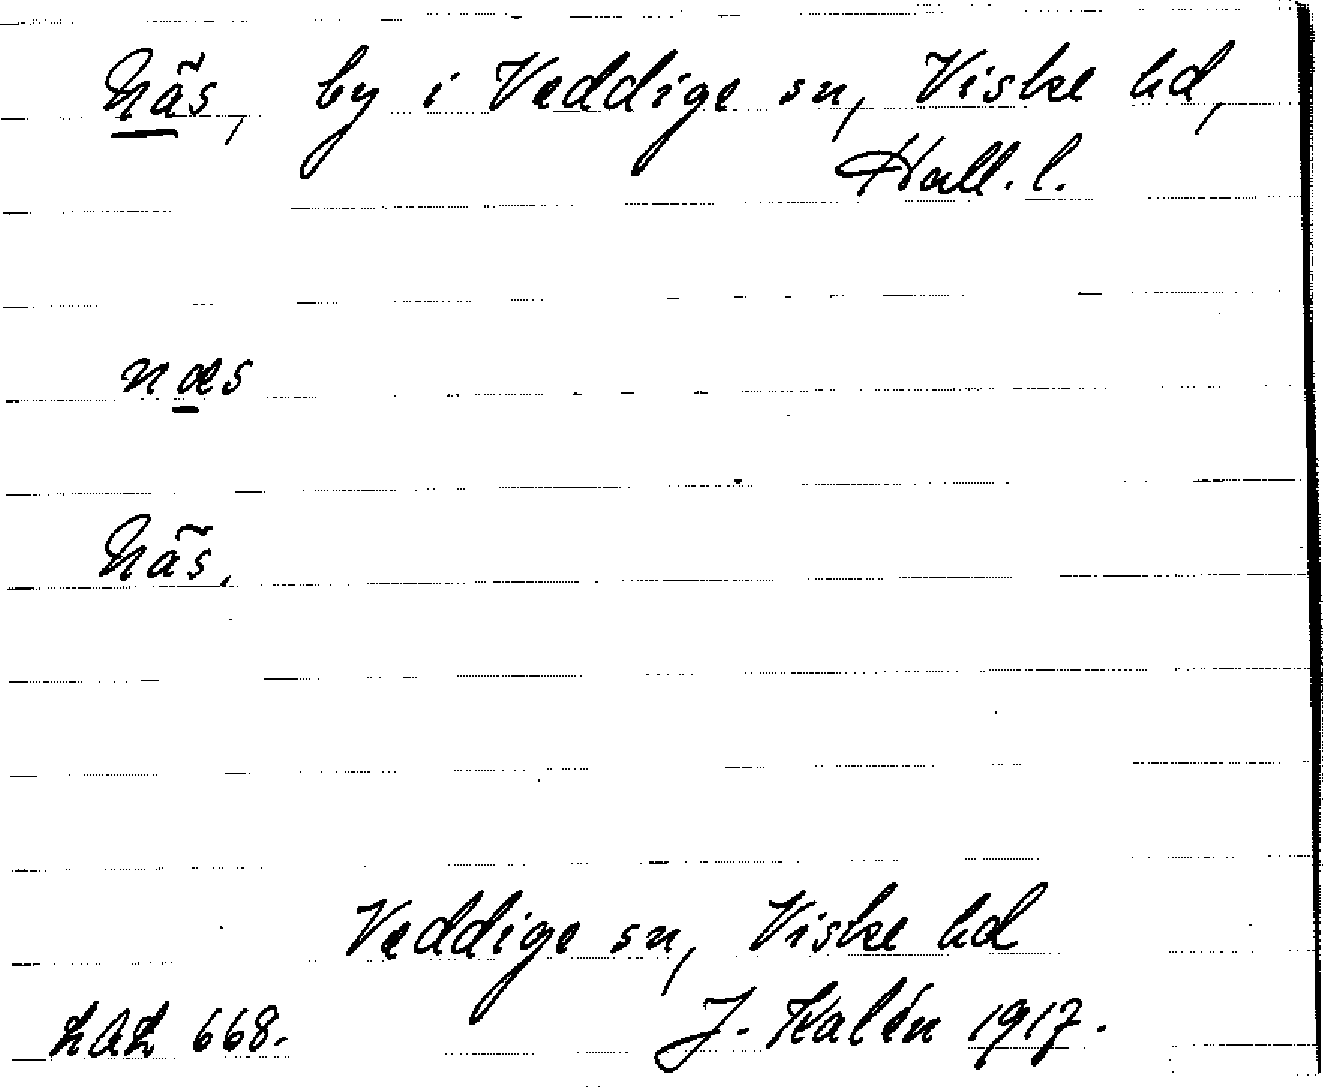 Näs, by i Veddige sn, Viske hd,
Hall. l.
næs
Näs.
Veddige sn, Viske hd
LAL 668.
J. Kalén 1917.